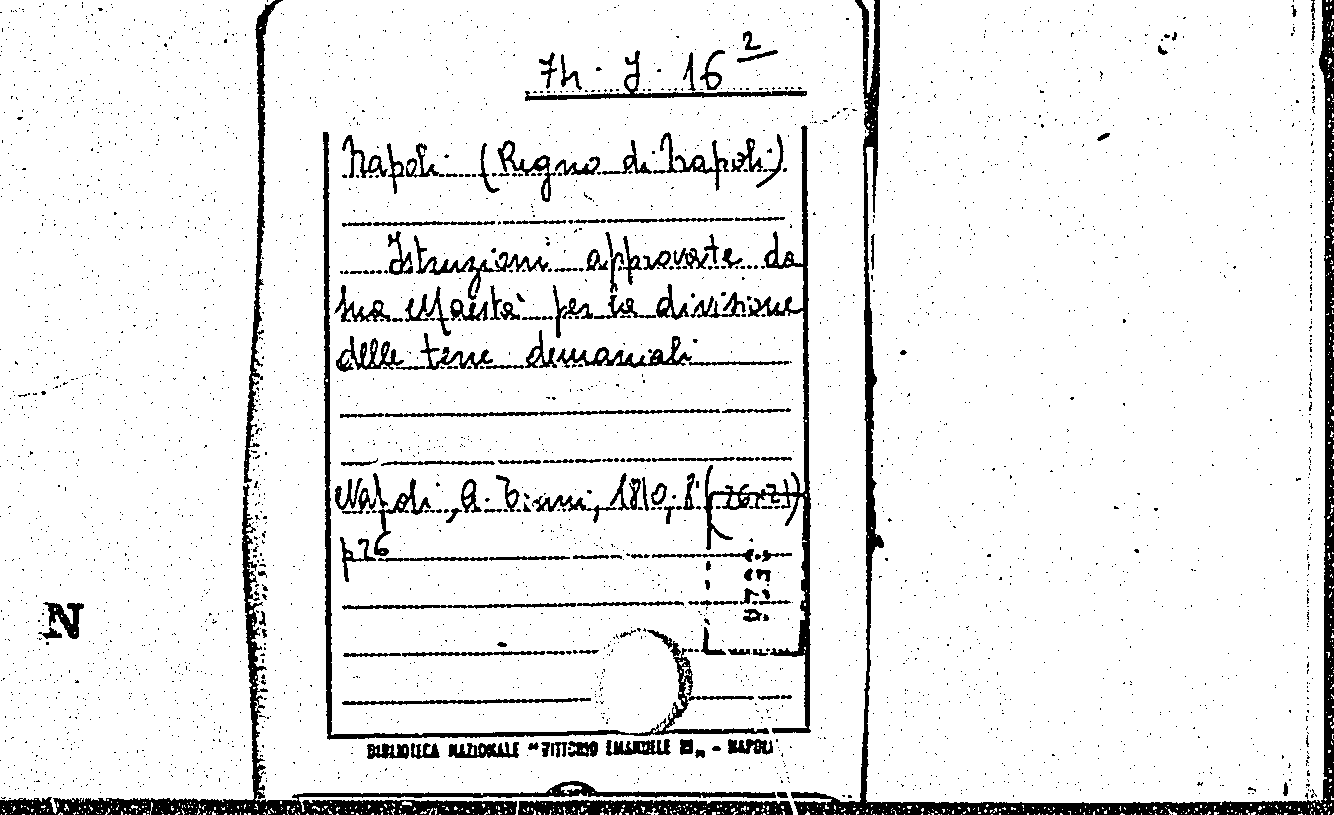 74 · J · 16²
Napoli (Regno di Napoli)
Istruzioni approvate da
sua Maestà per la divisione
delle terre demaniali
Napoli, A. Trani, 1810; 8°
p 26
BIBLIOTECA NAZIONALE "VITTORIO EMANUELE III" - NAPOLI
N